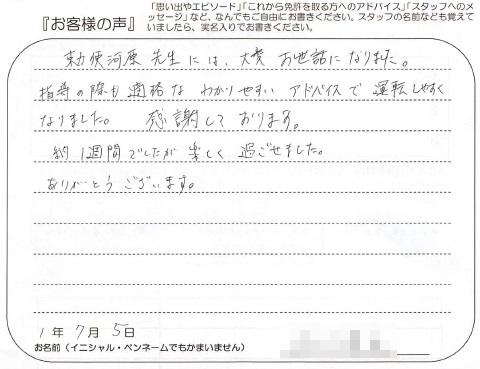 『お客様の声』
「思い出やエピソード」「これから免許を取る方へのアドバイス」「スタッフへのメ
ッセージ」など、なんでもご自由にお書きください。スタッフの名前なども覚えて
いましたら、実名入りでお書きください。
勅使河原先生には、大変お世話になりました。
指導の際も適格なわかりやすいアドバイスで運転しやすく
なりました。感謝しております。
約1週間でしたが楽しく過ごせました。
ありがとうございます。
1年7月5日
お名前（イニシャル・ペンネームでもかまいません）